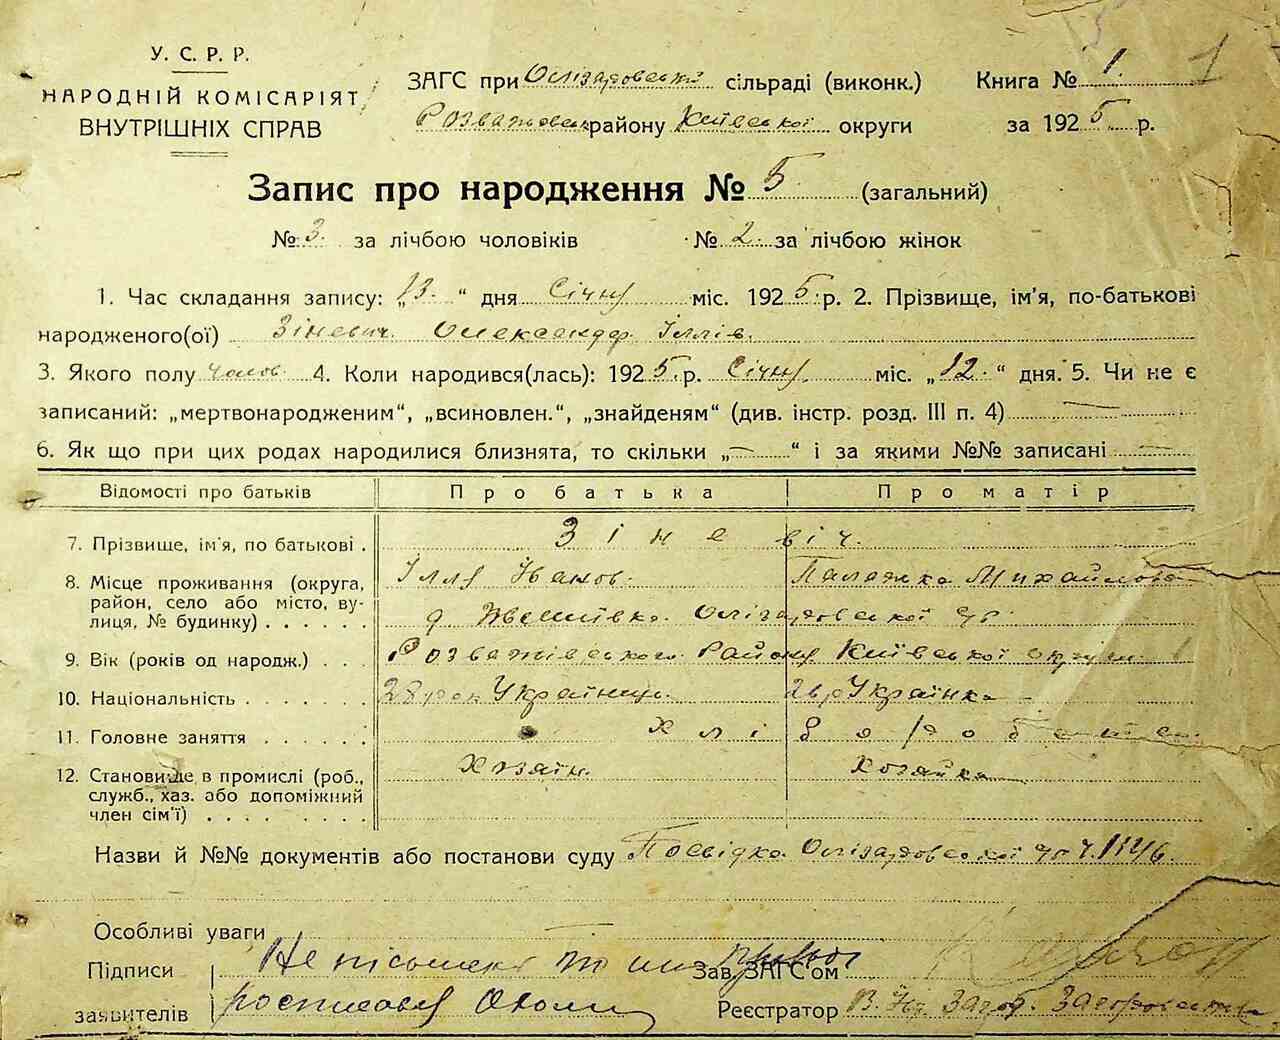 У. С. Р. Р.
НАРОДНІЙ КОМІСАРІЯТ
ВНУТРІШНІХ СПРАВ
ЗАГС при Олізаровській сільраді (виконк.)
Розважівськ. району Київської округи
Книга № 1.
1
за 1925 р.
Запис про народження № 5 (загальний)
№ 3. за лічбою чоловіків № 2. за лічбою жінок
1. Час складання запису: „13.“ дня Січня міс. 1925 р. 2. Прізвище, ім'я, по-батькові
народженого(ої) Зіневич Олександр Іллів.
3. Якого полу чолов. 4. Коли народився(лась): 1925 р. Січня міс. „12.“ дня. 5. Чи не є
записаний: „мертвонародженим“, „всиновлен.“, „знайденям“ (див. інстр. розд. III п. 4) —
6. Як що при цих родах народилися близнята, то скільки „—“ і за якими №№ записані —
Відомості про батьків Про батька Про матір
7. Прізвище, ім'я, по батькові . Зіневіч.
8. Місце проживання (округа, Ілля Іванов. Палажка Михайлова
район, село або місто, ву-
лиця, № будинку) . . . . . . Олізаровської
9. Вік (років од народж.) . . . Розважівського Району Київської округи
10. Національність . . . . . . . 28 Українец. Українка
11. Головне заняття . . . . . . Хлібороб
12. Становище в промислі (роб., Хозаін. Хозайка
служб., хаз. або допоміжний
член сім'ї) . . . . . . . .
Назви й №№ документів або постанови суду Посвідка Олізаровської
Особливі уваги
Підписи
заявителів
Зав. ЗАГС'ом
Реєстратор